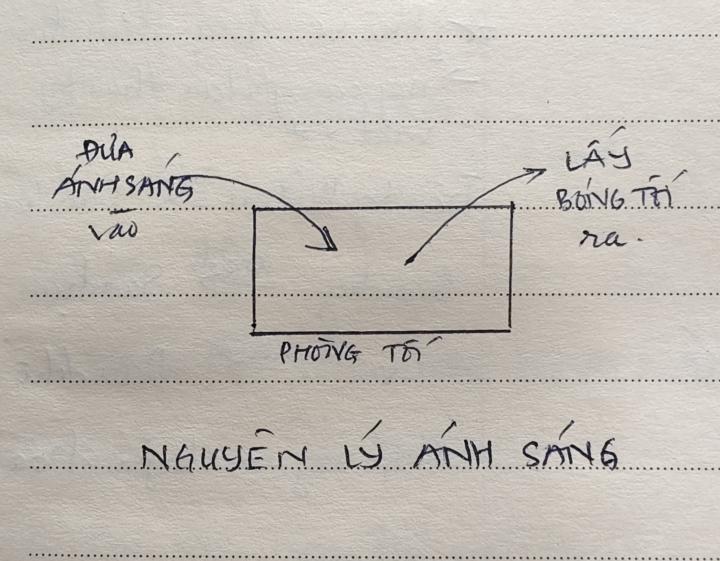 ĐƯA
ÁNH SÁNG
vào
LẤY
BÓNG TỐI
ra.
PHÒNG TỐI
NGUYÊN LÝ ÁNH SÁNG